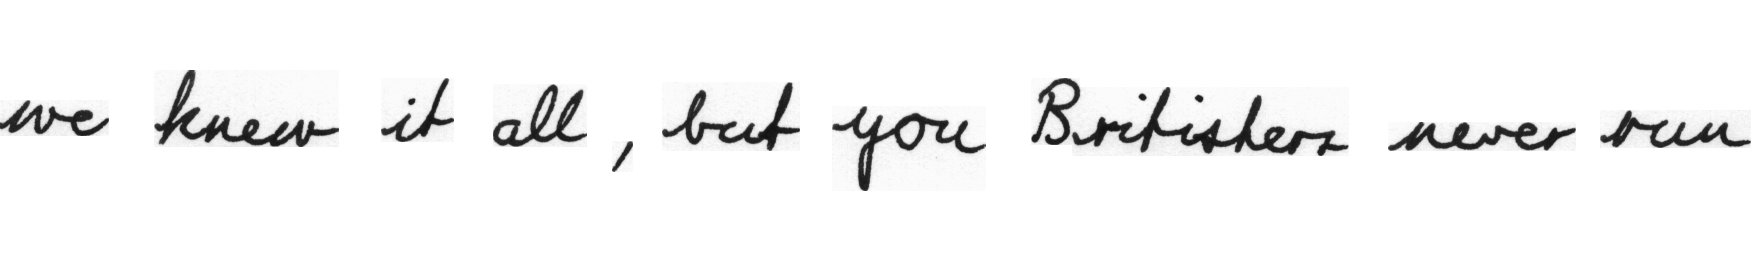 we knew it all , but you Britishers never run